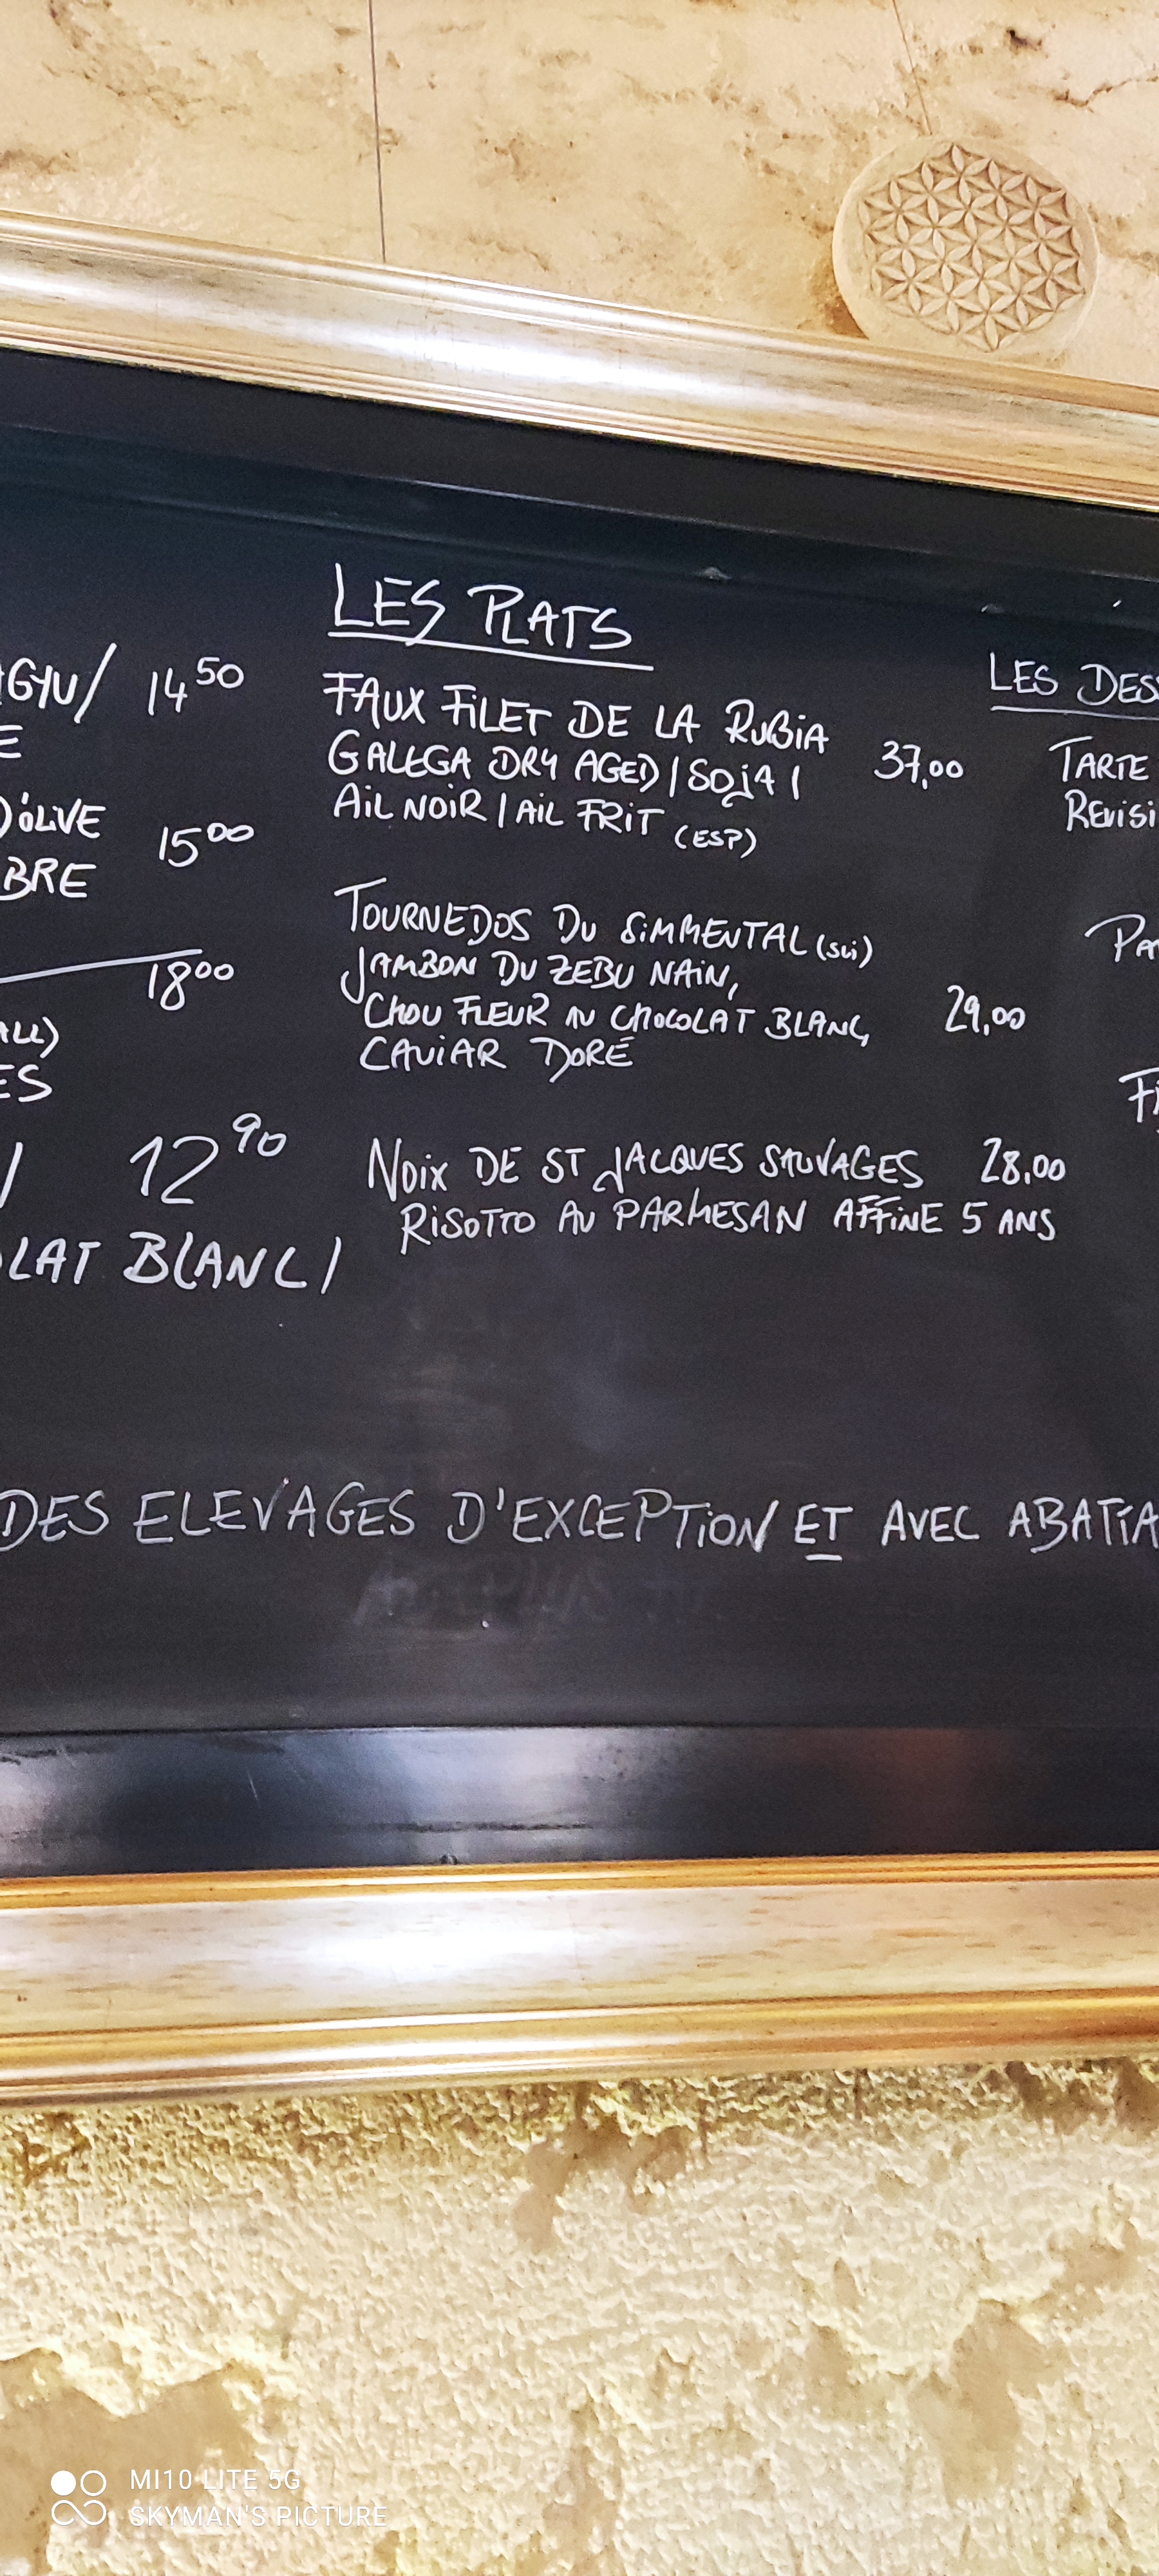 AGYU/ 14 50
E
D'OLIVE
15 00
BRE
18 00
ALL)
ES
/ 12 90
LAT BLANC/
LES PLATS
FAUX FILET DE LA RUBIA
GALLEGA DRY AGED / SOJA / 37,00
AIL NOIR / AIL FRIT (ESP)
TOURNEDOS DU SIMMENTAL (SUI)
JAMBON DU ZEBU NAIN,
CHOU FLEUR AU CHOCOLAT BLANC, 29,00
CAVIAR DORÉ
NOIX DE ST JACQUES SAUVAGES 28,00
RISOTTO AU PARMESAN AFFINE 5 ANS
LES DES
TARTE
REVISI
PA
FI
DES ELEVAGES D'EXCEPTION ET AVEC ABATIA
MI10 LITE 5G
SKYMAN'S PICTURE